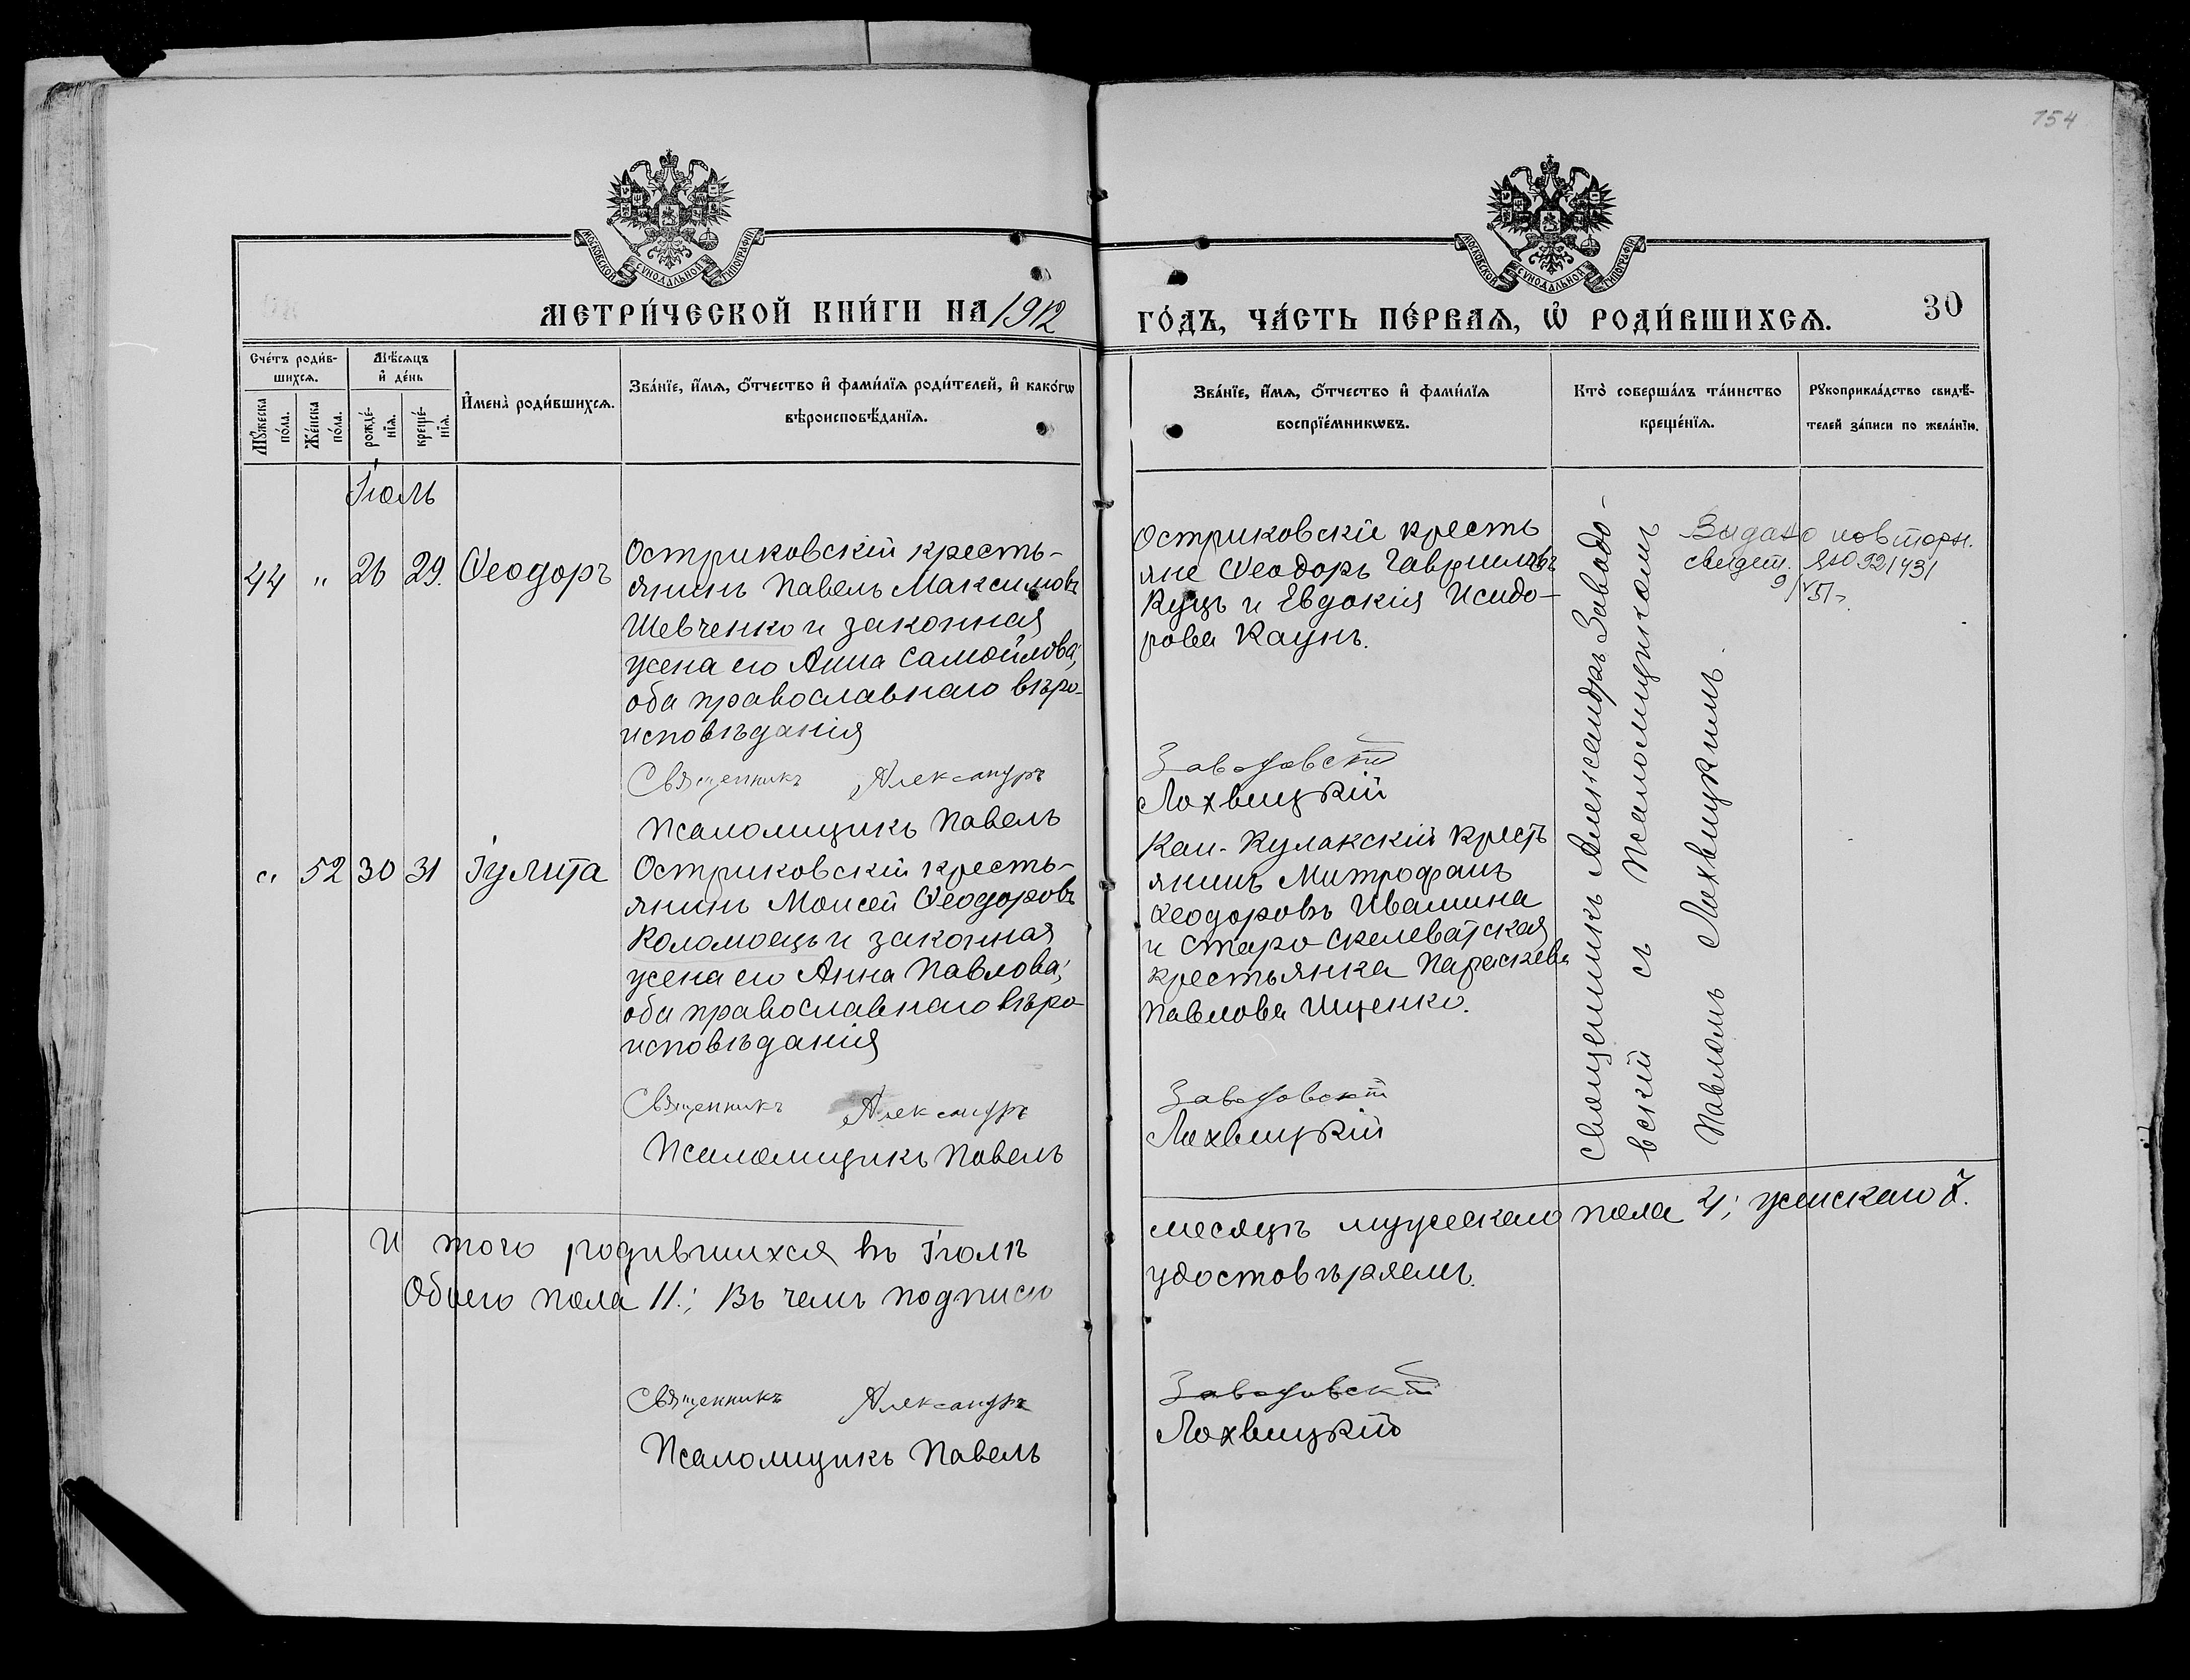 154
МОСКОВСКОЙ СѴНОДАЛЬНОЙ ТИПОГРАФІИ
МОСКОВСКОЙ СѴНОДАЛЬНОЙ ТИПОГРАФІИ
МЕТРИ́ЧЕСКОЙ КНИ́ГИ НА 1912
ГО́ДЪ, ЧА́СТЬ ПЕ́РВАѦ, Ѽ РОДИ́ВШИХСѦ.
30
Сче́тъ роди́в-
шихсѧ.
Мѣ́сѧцъ
и҆ де́нь
Мꙋ́жеска
по́ла.
Же́нска
по́ла.
рожде́-
нїѧ.
креще́-
нїѧ.
И҆мена̀ роди́вшихсѧ.
Зва́нїе, и҆́мѧ, ѻ҆́тчество и҆ фами́лїѧ роди́телей, и҆ како́гѡ
вѣроисповѣ́данїѧ.
Зва́нїе, и҆́мѧ, ѻ҆́тчество и҆ фами́лїѧ
воспрїе́мникѡвъ.
Кто̀ соверша́лъ та́инство
креще́нїѧ.
Рꙋкоприкла́дство свидѣ́-
телей за́писи по жела́нїю.
Іюль
44 " 26 29. Ѳеодоръ
Остриковскій кресть-
янинъ Павелъ Максимовъ
Шевченко и законная
жена его Анна Самойлова;
оба православнаго вѣро-
исповѣданія
Священникъ Александръ
Псаломщикъ Павелъ
Остриковскіе кресть
яне Ѳеодоръ Гавриловъ
Куцъ и Евдокія Исидо-
рова Каунъ.
Заводовскій
Лохвицкій
Священникъ Александръ Заводо-
вскій съ Псаломщикомъ
Павломъ Лохвицкимъ.
Видано повторн.
свидет. ЯЮ 921431
" 52 30 31 Іулита
Остриковскій кресть-
янинъ Моисей Ѳеодоровъ
Коломоецъ и законная
жена его Анна Павлова;
оба православнаго вѣро
исповѣданія
Священникъ Александръ
Псаломщикъ Павелъ
Кан-Кулакскій крестъ
янинъ Митрофанъ
Ѳеодоровъ Ивашина
и Старо Скелеватская
крестьянка Параскева
Павлова Ищенко.
Заводовскій
Лохвицкій
И того родившихся въ Іюлѣ
месяцѣ мужескаго пола 4; женскаго 7.
Обоего пола 11.; Въ чемъ подписю
удостовѣряемъ.
Священникъ Александръ
Псаломщикъ Павелъ
Заводовскій
Лохвицкій